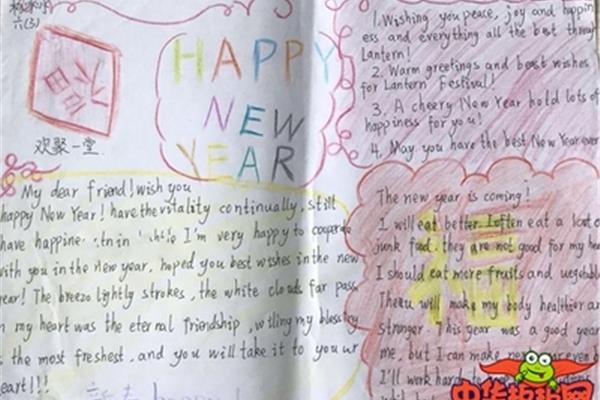 六(3)
欢聚一堂
HAPPY
NEW
YEAR
1. Wishing you peace, joy and happin
ess and everything all the best throu
Lantern!
2. Warm greetings and best wishes
for Lantern Festival!
3. A cheery New Year hold lots of
happiness for you!
4. May you have the best New Year ever
My dear friend! wish you
happy New Year! have the vitality continually, still
have happine
I'm very happy to cooperate
with you in the new year, hoped you best wishes in the new
year! The breeze lightly strokes, the white clouds far pass
my heart was the eternal friendship, willing my blessing
the most freshest, and you will take it to your
eart!!!
新春
福
The new year is coming!
I will eat better. I often eat a lot of
junk food. they are not good for my hea
I should eat more fruits and vegetable
These will make my body healthier an
stronger. This year was a good year
me, but I can make next year even
I'll work hard to
中华